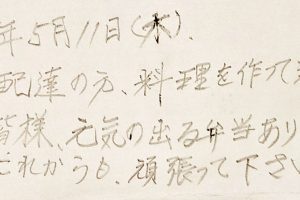 年5月11日(木).
配達の方、料理を作って
皆様、元気の出る弁当あり
これからも、頑張って下さい